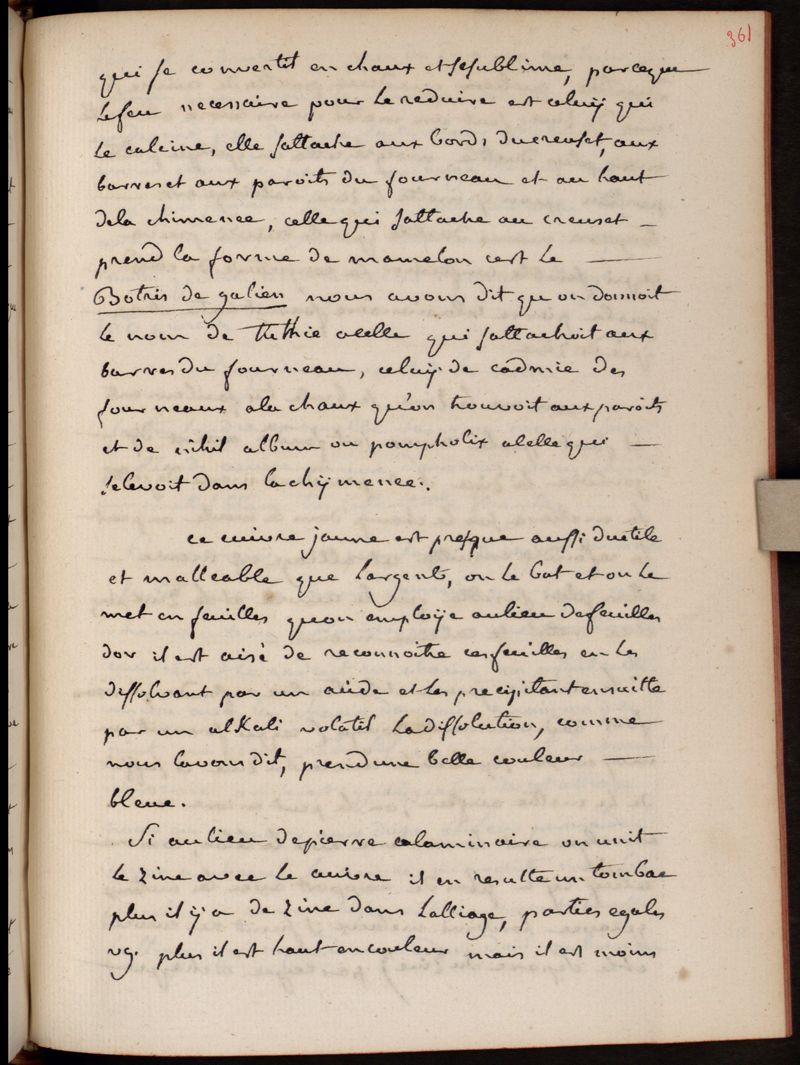 361
qui se convertit en chaux et se sublime, parceque
le feu necessaire pour le reduire est celuy qui
le calcine, elle sattache aux bords du creuset, aux
barres et aux paroits du fourneau et au haut
de la chimenee, celle qui sattache au creuset —
prend la forme de mamelon cest le —
Botris de galien nous avons dit qu on donnoit
le nom de tuthie a celle qui sattachoit aux
barres du fourneau, celuy de cadmie des
fourneaux a la chaux qu'on trouvoit aux paroits
et de nihil album ou pompholix a celle qui —
selevoit dans la chymenee.
ce cuivre jaune est presque aussi ductile
et malleable que largent, on le bat et on le
met en feuilles quon employe au lieu de feuilles
dor il est aisé de reconnoitre ces feuilles en les
dissolvant par un acide et les precipitant ensuitte
par un alkali volatil la dissolution, comme
nous lavons dit, prend une belle couleur —
bleue.
Si au lieu de pierre calaminaire on unit
le zinc avec le cuivre il en resulte un tombac
plus il y a de zinc dans lalliage, parties egales
vg. plus il est haut en couleur mais il est moins